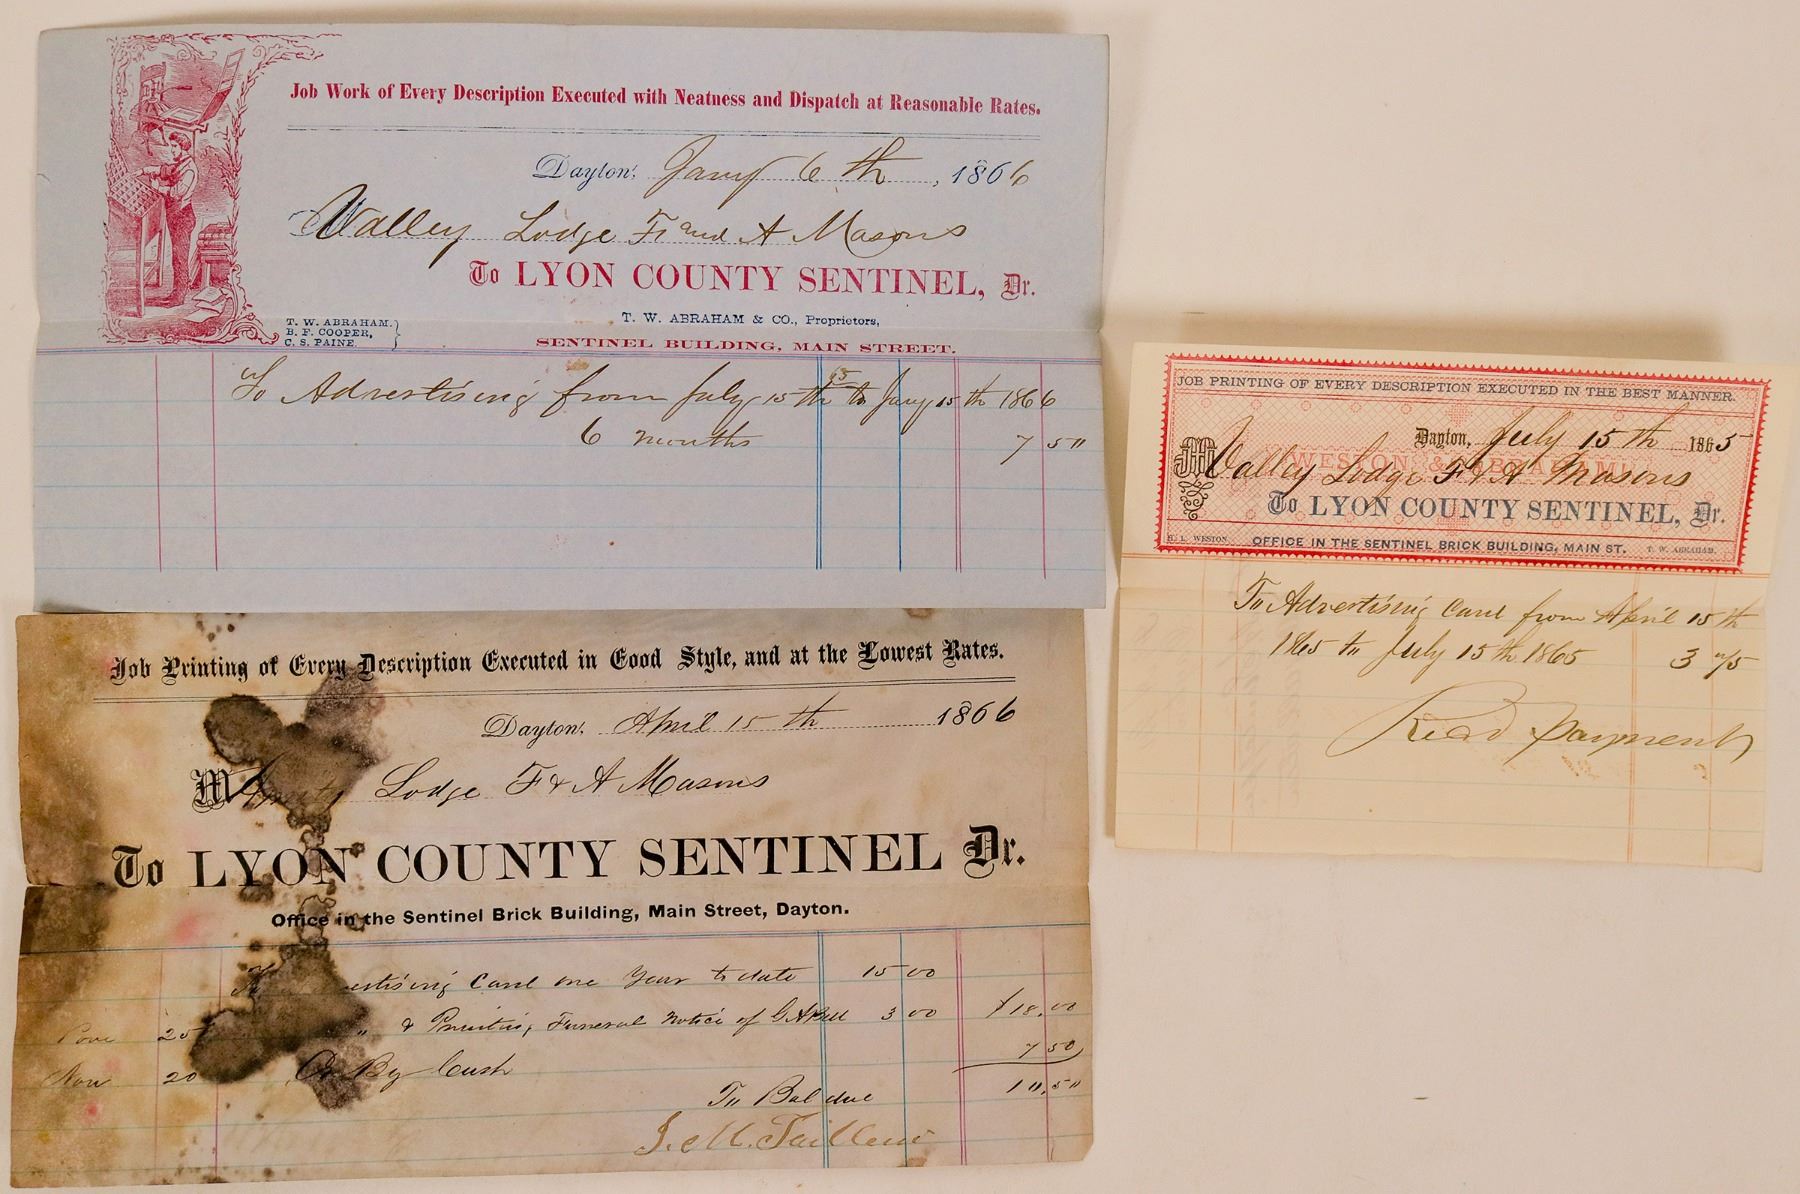 Job Work of Every Description Executed with Neatness and Dispatch at Reasonable Rates.
Dayton, Jany 6 th, 1866
Valley Lodge F and A Masons
To LYON COUNTY SENTINEL, Dr.
T. W. ABRAHAM.
B. F. COOPER,
C. S. PAINE.
T. W. ABRAHAM & CO., Proprietors,
SENTINEL BUILDING, MAIN STREET.
To Advertising from July 15 th 65 to Jany 15 th 1866
6 months 7 50
JOB PRINTING OF EVERY DESCRIPTION EXECUTED IN THE BEST MANNER.
Dayton, July 15 th 1865
WESTON & ABRAHAM
M Valley Lodge F & A Masons
To LYON COUNTY SENTINEL, Dr.
H. L. WESTON. OFFICE IN THE SENTINEL BRICK BUILDING, MAIN ST. T. W. ABRAHAM.
To Advertising Card from April 15 th
1865 to July 15 th 1865 3 75
Recd Payment
Job Printing of Every Description Executed in Good Style, and at the Lowest Rates.
Dayton, April 15 th 1866
M Lodge F & A Masons
To LYON COUNTY SENTINEL Dr.
Office in the Sentinel Brick Building, Main Street, Dayton.
Card one Year to date 15 00
25 " & Printing Funeral Notice of 3 00 $18.00
Nov 20 Cr By Cash 7 50
To Bal due 10.50